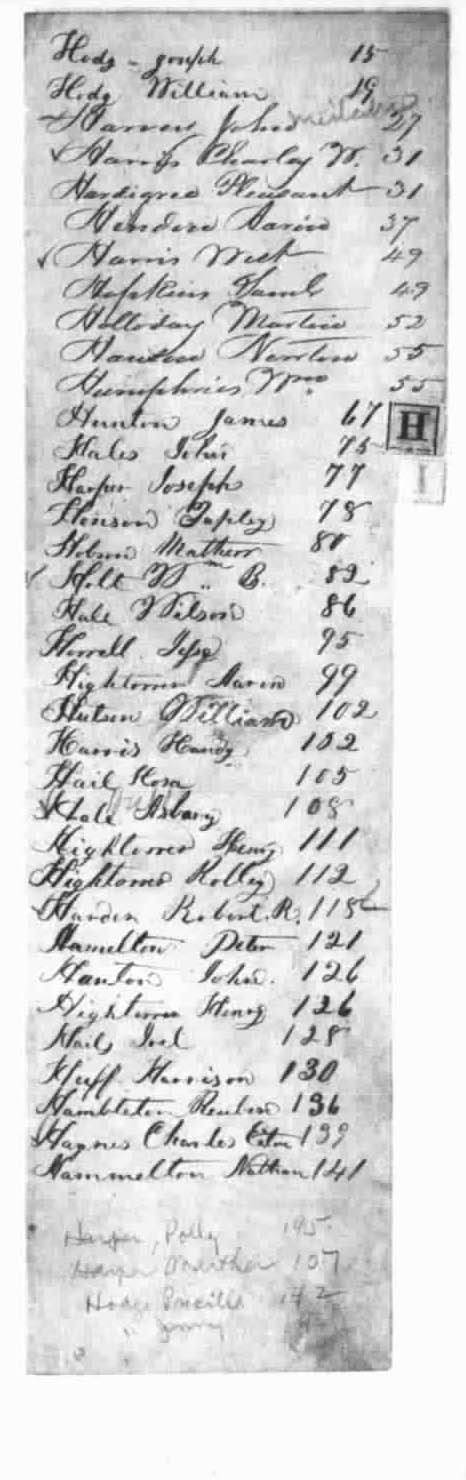 Hodg - gouph 15
Hodg William 19
John 27
Harris Charley W. 31
Hardigree Pleasant 31
37
Harris West 49
Hopkins 49
Holloday Martin 52
Newton 55
Humphries Wm 55
Hunton James 67
H
Hales John 75
I
Harper Joseph 77
Henson Tapley 78
Mathew 80
Holt Wm B. 82
Hale Wilson 86
Horrell Jesse 95
Hightower Aaron 99
Hutson William 102
Harris Handy 102
Hail Hosa 105
Hale Asbury 108
Hightower Henry 111
Hightower Rolley 112
Harden Robert. R. 115
Hamelton Peter 121
Hanton John. 126
Hightower Henry 126
Hail Joel 128
Huff Harrison 130
Hambleton Reuben 136
Haynes Charles Eaton 139
Hammelton Nathan 141
Harper, Polly 195
Harper 107
Hodge 142
" Jenny